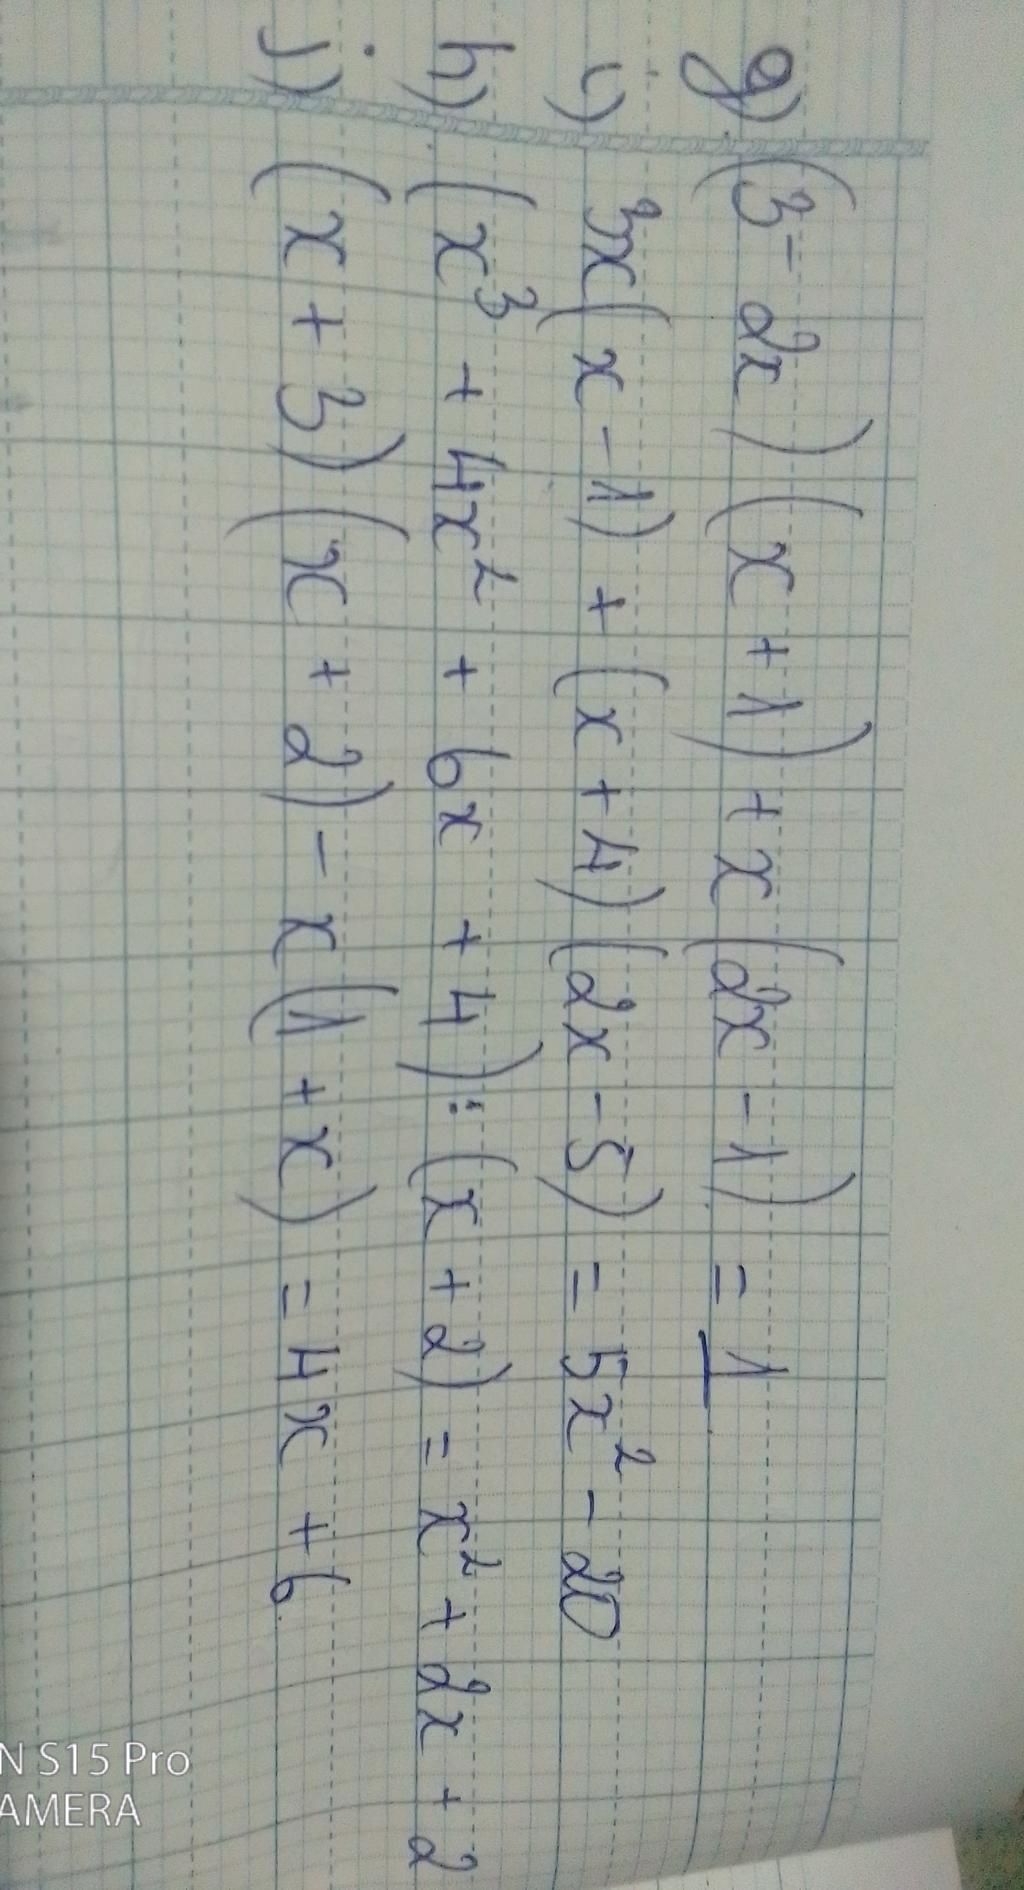 g) (3- 2x) (x +1) +x (2x -1) = 1
i) 3x(x -1) + (x +4) (2x -5) = 5x² - 20
h) (x³ + 4x² + 6x + 4) : (x + 2) = x² + 2x + 2
j) (x + 3) (x + 2) - x (1 +x) = 4x + 6
N S15 Pro
AMERA